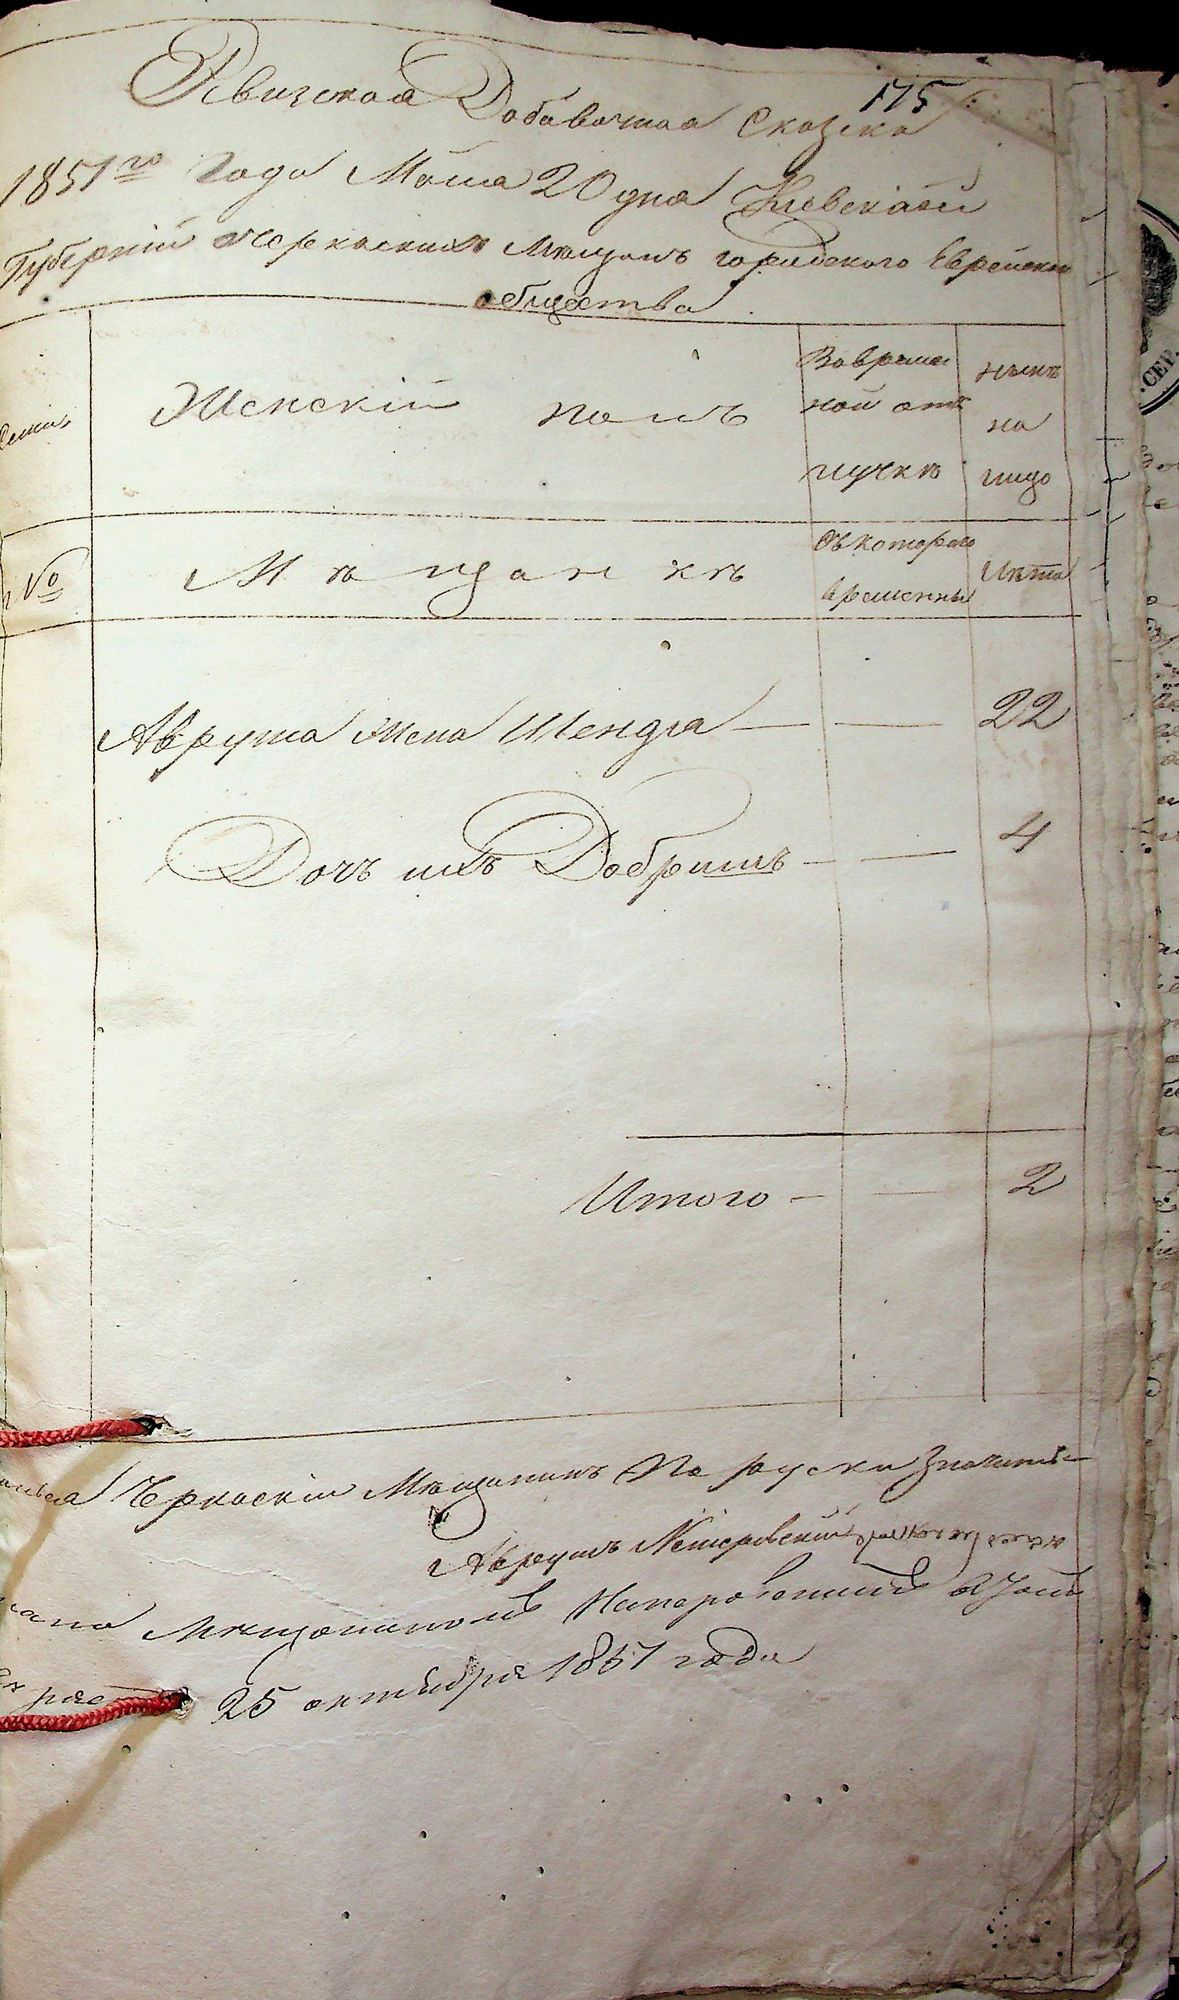 175
Ревизская Добавочная Сказка
1851го Года Маия 20 дня Киевской
Губернiи Черкаскихъ Мещанъ городского Еврейскаго
общества
Семьи
Женскiй полъ
Во времен
ной от
лучкѣ
ныне
на
лицо
№
Мѣщанкъ
Съ котораго
времянны
Лѣта
Аврума жена Шендля — — 22
Дочь ихъ Добришъ — — 4
Итого — — 2
Черкаскiй Мещанинъ По руски Значитъ
Аврумъ
Мещаниномъ
25 октября 1851 года